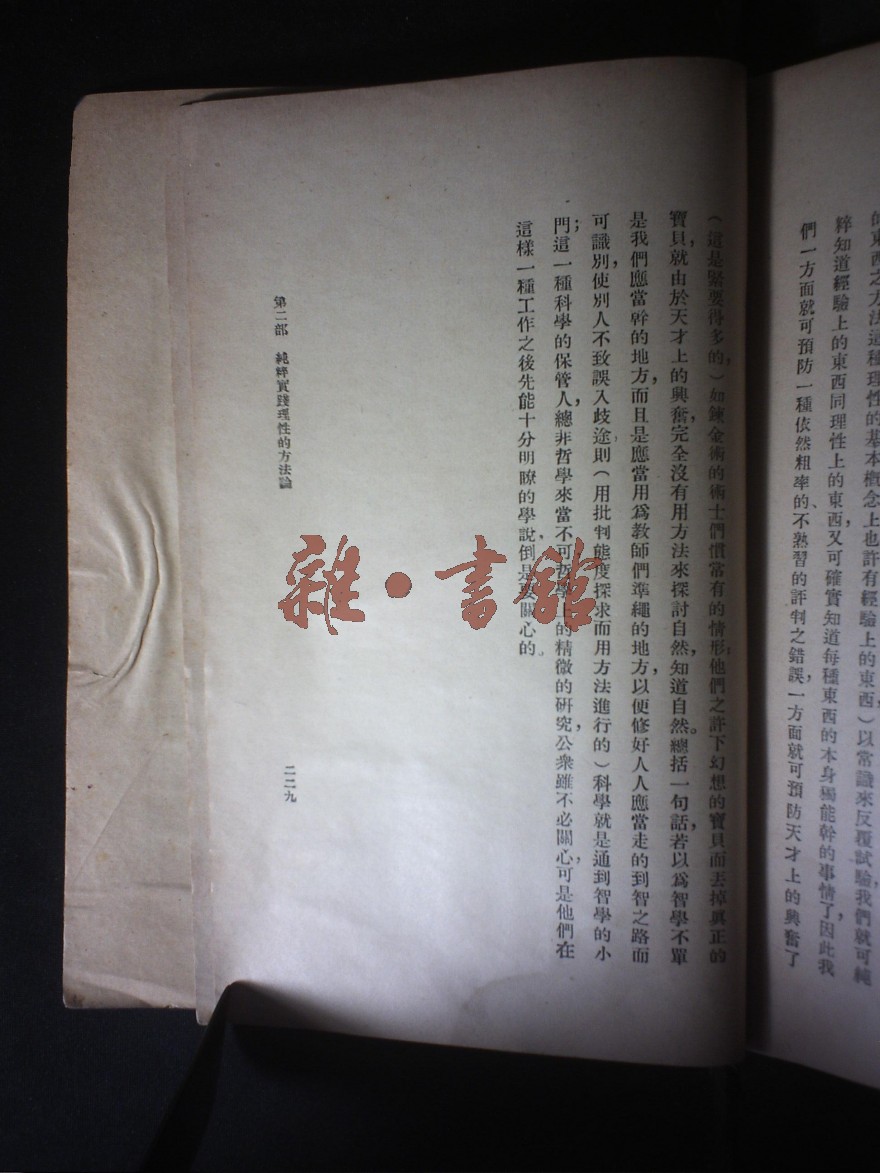 的東西之方法這種理性的基本概念上也許有經驗上的東西)以常識來反覆試驗,我們就可純
粹知道經驗上的東西同理性上的東西,又可確實知道每種東西的本身獨能幹的事情了,因此我
們一方面就可預防一種依然粗率的、不熟習的評判之錯誤,一方面就可預防天才上的興奮了
(這是緊要得多的,)如鍊金術的術士們慣常有的情形,他們之許下幻想的寶貝而丟掉眞正的
寶貝,就由於天才上的興奮,完全沒有用方法來探討自然,知道自然。總括一句話,若以爲智學不單
是我們應當幹的地方,而且是應當用爲教師們準繩的地方,以便修好人人應當走的到智之路而
可識別,使別人不致誤入歧途,則(用批判態度探求而用方法進行的)科學就是通到智學的小
門;這一種科學的保管人,總非哲學來當不可,哲學上的精微的研究,公衆雖不必關心,可是他們在
這樣一種工作之後先能十分明瞭的學說,倒是要關心的。
第二部 純粹實踐理性的方法論
二二九
雜·書館